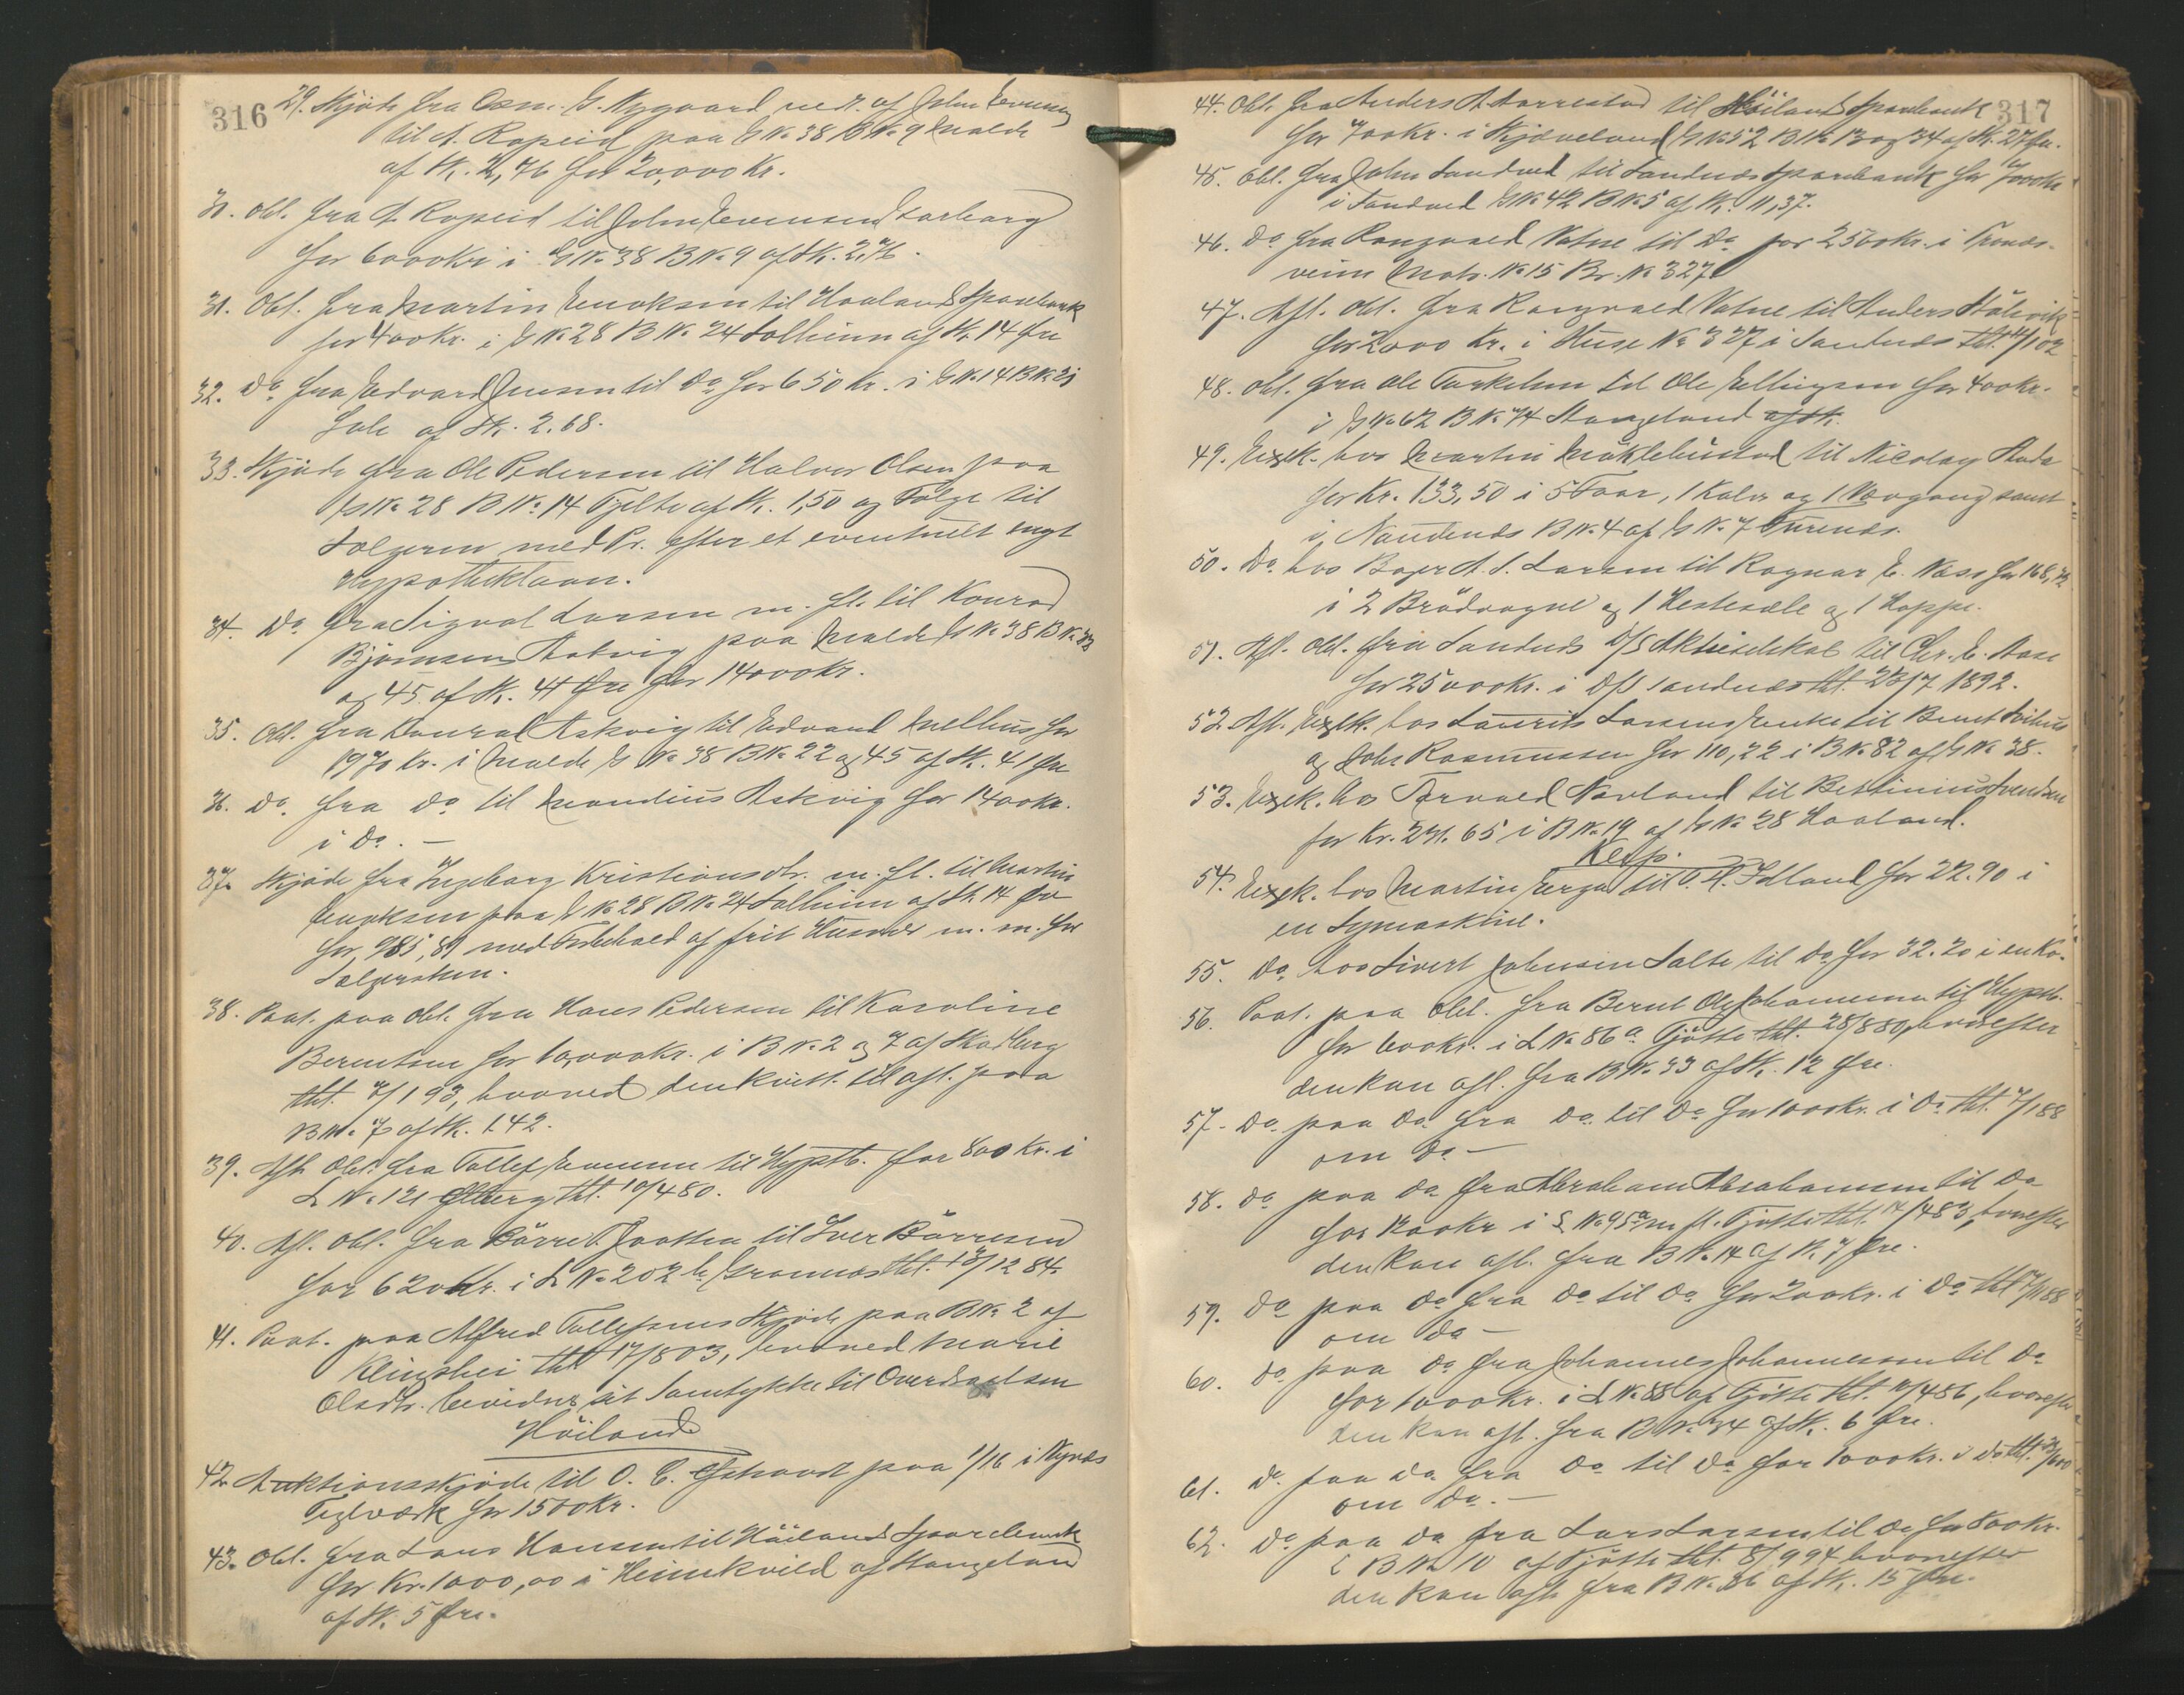 316
29. Skjøde fra Oscar G. Nygaard ved af John Evensen
til A. Ropeid paa G No 38 B No 9 Malde
af Sk. 2,76 for 20,000 Kr.
30. Obl. fra A. Ropeid til John Evensen
for 6000 Kr. i G No 38 B No 9 af Sk. 2,76.
31. Obl. fra Martin Enoksen til Haalands Sparebank
for 400 Kr. i G No 28 B No 24 Solheim af Sk. 14 Øre
32. Do fra Edvard Jensen til Do for 650 Kr. i G No 14 B No 21
Sole af Sk. 2.68.
33. Skjøde fra Ole Pedersen til Halvor Olsen paa
G No 28 B No 14 Tjelte af Sk. 1,50 og Følge til
Sælgeren med Pr. efter et eventuelt nyt
Hypotheklaan.
34. Do fra Sigval Larsen m. fl. til Konrad
Bjørnsen Askvig paa Malde G No 38 B No 22
og 45 af Sk. 41 Øre for 14000 Kr.
35. Obl. fra Konrad Askvig til Edvard Mellhus for
1970 Kr. i Malde G No 38 B No 22 og 45 af Sk. 41 Øre
36. Do fra Do til Mandius Askvig for 1400 Kr.
i Do. —
37. Skjøde fra Ingeborg Kristiansdtr. m. fl. til Martin
Enoksen paa G No 28 B No 24 Solheim af Sk. 14 Øre
for 985,81 med Forbehold af frit Husvær m. m. for
Sælgersken.
38. Paat. paa Obl. fra Hans Pedersen til Karoline
Berentsen for 10,000 Kr. i B No 2 og 7 af
tht. 7/1 93, hvorved den kvitt. til afl. paa
B No 7 af Sk. 1.42.
39. Afl. Obl. fra Tollef Evensen til Hypotb. for 800 Kr. i
L No 121 tht. 10/4 80.
40. Afl. Obl. fra Børre T. til Iver Børresen
for 620 Kr. i L No 202 b Grannes tht. 13/12 84.
41. Paat. paa Alfred Tollefsens Skjøde paa B No 2 af
tht. 17/8 03, hvorved Marie
Olsdtr. bevidner sit Samtykke til Overdragelsen
Høiland
42. Auktionsskjøde til O. C. paa 1/16 i
Teglværk for 1500 Kr.
43. Obl. fra Lars Hansen til Høilands Sparebank
for Kr. 1000,00 i Heimkvild af Stangeland
af Sk. 5 Øre.
317
44. Obl. fra Anders A. Aarrestad til Høilands Sparebank
for 700 Kr. i Skjæveland G No 52 B No 13 og 34 af Sk. 27 Øre.
45. Obl. fra John Sandved til Sandnes Sparebank for 7000 Kr
i Sandved G No 42 B No 5 af Sk. 11,37.
46. Do fra Rangvald Vatne til Do for 2500 Kr. i
Matr. No 15 Br. No 327
47. Afl. Obl. fra Rangvald Vatne til Anders
for 2000 Kr. i Huse No 327 i Sandnes tht.
48. Obl. fra Ole Torkelsen til Ole Ellingsen for 400 Kr.
i G No 62 B No 74 Stangeland af Sk.
49. Exek. hos Martin Møklebustad til Nicolay
for Kr. 133,50 i 5 Faar, 1 Kalv og 1 samt
i B No 4 af G No 7
50. Do hos Bager A. S. Larsen til Ragnar E. Næss for 168,
i 2 Brødvogne og 1 Hestesæle og 1 Hoppe.
51. Afl. Obl. fra Sandnes D/S Aktieselskab til Chr. E. Aase
for 25000 Kr. i D/S Sandnes tht. 23/7 1892.
52. Afl. Exek. hos Laurits Larsens Enke til Berent
og Johs Rasmussen for 110,22 i B No 82 af G No 38.
53. Exek. hos Torvald Norland til Bertinius Svendsen
for Kr. 231.65 i B No 19 af G No 28 Haaland.
Klep.
54. Exek. hos Martin til O. A. Idland for 22.90 i
en Symaskine.
55. Do hos Sivert Johnsen Salte til Do for 32.20 i en Ko.
56. Paat. paa Obl. fra Bernt Olaf Johannesen til Hypotb.
for 600 Kr. i L No 86 a Tjøtte tht. 28/8 80, hvorefter
den kan afl. fra B No 33 af Sk. 12 Øre.
57. Do paa Do fra Do til Do for 1000 Kr. i Do tht. 7/1 88
om Do —
58. Do paa Do fra Abraham Abrahamsen til Do
for Kr. i L No 95 a m fl. Tjøtte tht. 17/4 83, hvorefter
den kan afl. fra B No 14 af Sk. 7 Øre.
59. Do paa Do fra Do til Do for 200 Kr. i Do tht. 7/1 88
om Do —
60. Do paa Do fra Johannes Johannessen til Do
for 1000 Kr. i L No 88 af Tjøtte tht. 10/4 86, hvorefter
den kan afl. fra B No 34 af Sk. 6 Øre.
61. Do paa Do fra Do til Do for 1000 Kr. i Do tht.
om Do. —
62. Do paa Do fra Lars Larsen til Do for Kr.
i B No 10 af Tjøtte tht. 8/9 94 hvorefter
den kan afl. fra B No 36 af Sk. 15 Øre.